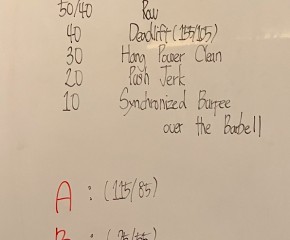 50/40 Row
40 Deadlift (155/105)
30 Hang Power Clean
20 Push Jerk
10 Synchronized Burpee
over the Barbell
A : (115/85)
B : (75/55)